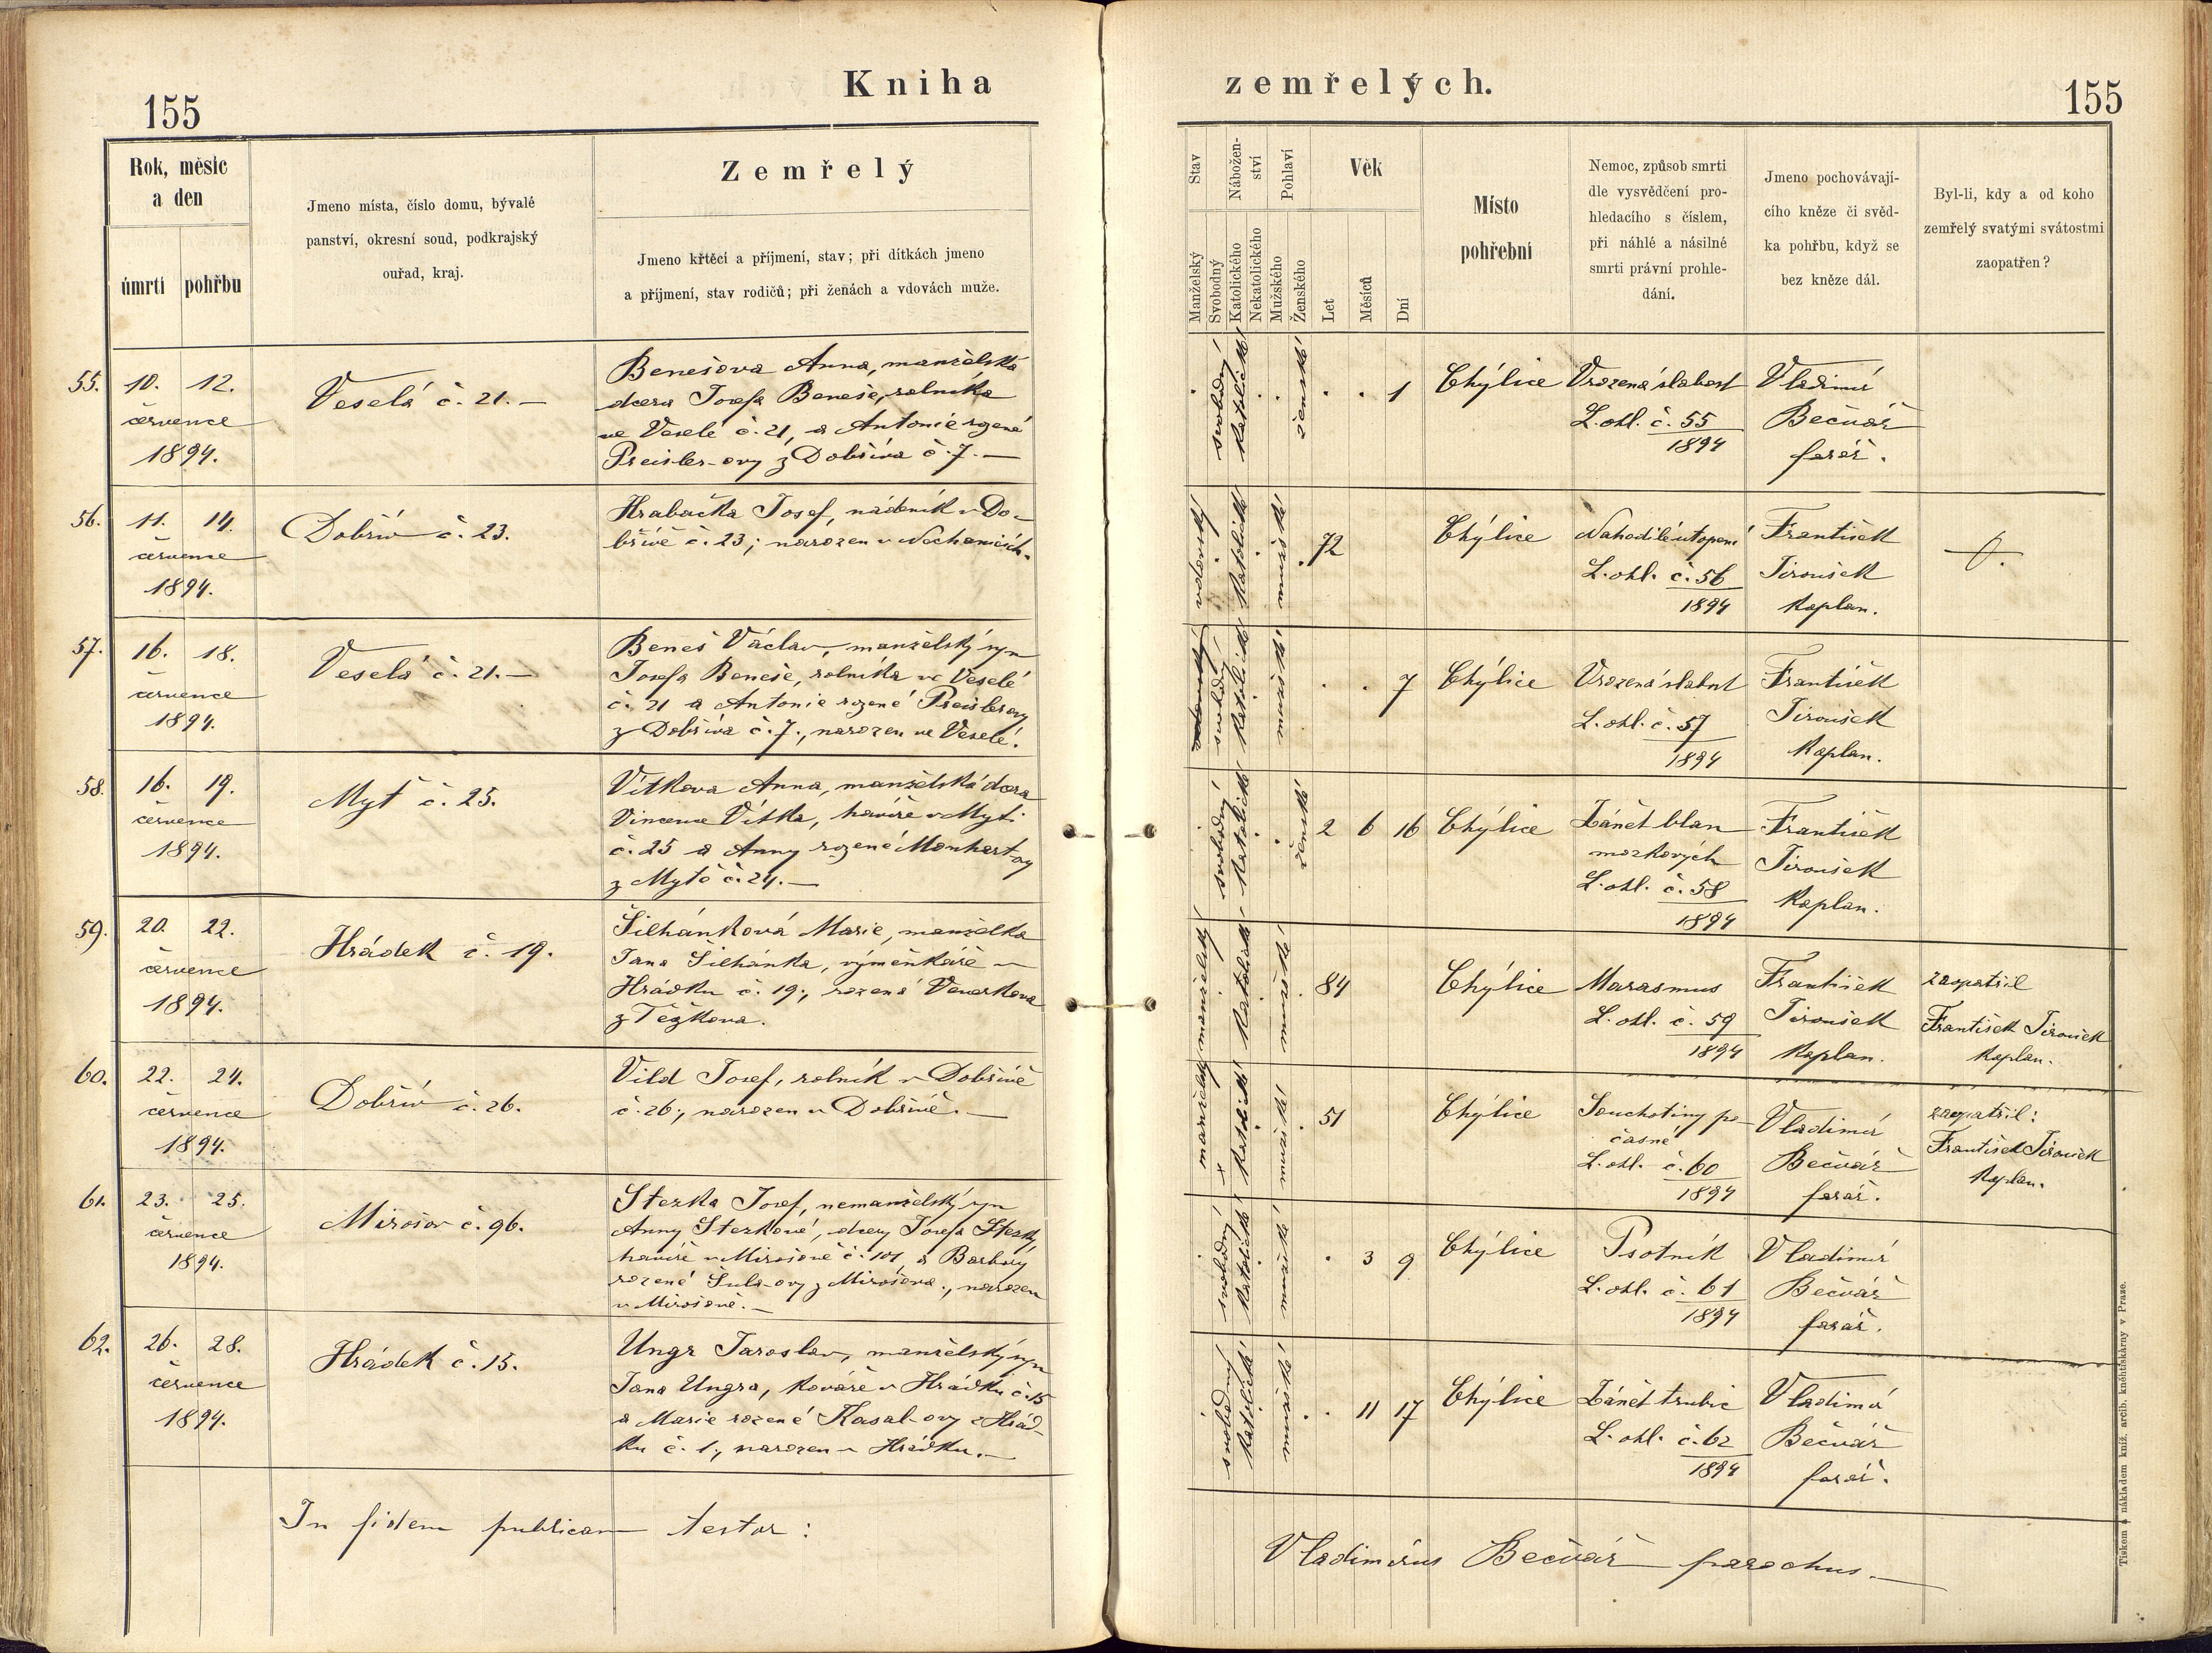 Kniha
zemřelých.
155
155
Rok, měsíc
a den
úmrtí
pohřbu
Jmeno místa, číslo domu, bývalé
panství, okresní soud, podkrajský
ouřad, kraj.
Zemřelý
Jmeno křtěcí a příjmení, stav; při dítkách jmeno
a příjmení, stav rodičů; při ženách a vdovách muže.
Stav
Manželský
Svobodný
Nábožen-
ství
Katolického
Nekatolického
Pohlaví
Mužského
Ženského
Věk
Let
Měsíců
Dní
Místo
pohřební
Nemoc, způsob smrti
dle vysvědčení pro-
hledacího s číslem,
při náhlé a násilné
smrti právní prohle-
dání.
Jmeno pochovávají-
cího kněze či svěd-
ka pohřbu, když se
bez kněze dál.
Byl-li, kdy a od koho
zemřelý svatými svátostmi
zaopatřen?
55. 10. 12.
července
1894.
Veselá č. 21. —
Benešova Anna, manželská
dcera Josefa Beneše, rolníka
ve Veselé č. 21, a Antonie rozené
Preisler-ovy z Dobříva č. 7. —
svobodný
katolické
ženské
1
Chýlice
Vrozená slabost
L. ohl. č. 55
1894
Vladimír
Bečvář
farář.
56. 11. 14.
července
1894.
Dobřív č. 23.
Hrabačka Josef, nádeník v Do-
břívě č. 23; narozen v Nechanicích.
vdovský
katolické
mužské
72
Chýlice
Nahodilé utopení
L. ohl. č. 56
1894
František
Jiroušek
kaplan.
57. 16. 18.
července
1894.
Veselá č. 21. —
Beneš Václav, manželský syn
Josefa Beneše, rolníka ve Veselé
č. 21 a Antonie rozené Preislerovy
z Dobříva č. 7., narozen ve Veselé.
svobodný
katolické
mužské
7
Chýlice
Vrozená slabost
L. ohl. č. 57
1894
František
Jiroušek
kaplan.
58. 16. 19.
července
1894.
Mýť č. 25.
Vítkova Anna, manželská dcera
Vincence Vítka, havíře v Myti
č. 25 a Anny rozené Manhart-ovy
z Mytě č. 24. —
svobodný
katolické
ženské
2 6 16
Chýlice
Zánět blan
mozkových
L. ohl. č. 58
1894
František
Jiroušek
kaplan.
59. 20. 22.
července
1894.
Hrádek č. 19.
Šilhánková Marie, manželka
Jana Šilhánka, výměnkáře v
Hrádku č. 19., rozená
z Těžkova.
manželský
katolické
mužské
84
Chýlice
Marasmus
L. ohl. č. 59
1894
František
Jiroušek
kaplan.
zaopatřil
František Jiroušek
kaplan.
60. 22. 24.
července
1894.
Dobřív č. 26.
Vild Josef, rolník v Dobřívě
č. 26., narozen v Dobřívě. —
manželský
katolické
mužské
51
Chýlice
Souchotiny po-
časné
L. ohl. č. 60
1894
Vladimír
Bečvář
farář.
zaopatřil:
František Jiroušek
kaplan.
61. 23. 25.
července
1894.
Mirošov č. 96.
Stezka Josef, nemanželský syn
Anny Stezkové, dcery Josefa Stezky
havíře v Mirošově č. 101, a Barbory
rozené Šulc-ovy z Mirošova., narozen
v Mirošově. —
svobodný
katolické
mužské
3 9
Chýlice
Psotník
L. ohl. č. 61
1894
Vladimír
Bečvář
farář.
62. 26. 28.
července
1894.
Hrádek č. 15.
Ungr Jaroslav, manželský syn
Jana Ungra, kováře v Hrádku č. 15
a Marie rozené Kasal-ovy z Hrád-
ku č. 1., narozen v Hrádku. —
svobodný
katolické
mužské
11 17
Chýlice
Zánět trubic
L. ohl. č. 62
1894
Vladimír
Bečvář
farář.
In fidem publicam testor:
Vladimirus Bečvář parochus. —
Tiskem a nákladem kníž. arcib. kněhtiskárny v Praze.